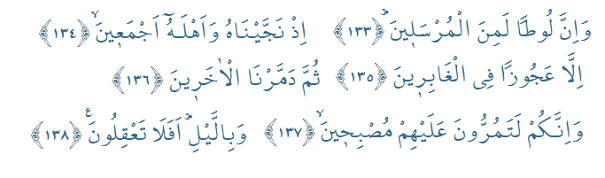 وَاِنَّ لُوطًا لَمِنَ الْمُرْسَل۪ينَۜ ﴿١٣٣﴾ اِذْ نَجَّيْنَاهُ وَاَهْلَهُٓ اَجْمَع۪ينَۙ ﴿١٣٤﴾
اِلَّا عَجُوزًا فِي الْغَابِر۪ينَ ﴿١٣٥﴾ ثُمَّ دَمَّرْنَا الْاٰخَر۪ينَ ﴿١٣٦﴾
وَاِنَّكُمْ لَتَمُرُّونَ عَلَيْهِمْ مُصْبِح۪ينَۙ ﴿١٣٧﴾ وَبِالَّيْلِۜ اَفَلَا تَعْقِلُونَ۟ ﴿١٣٨﴾